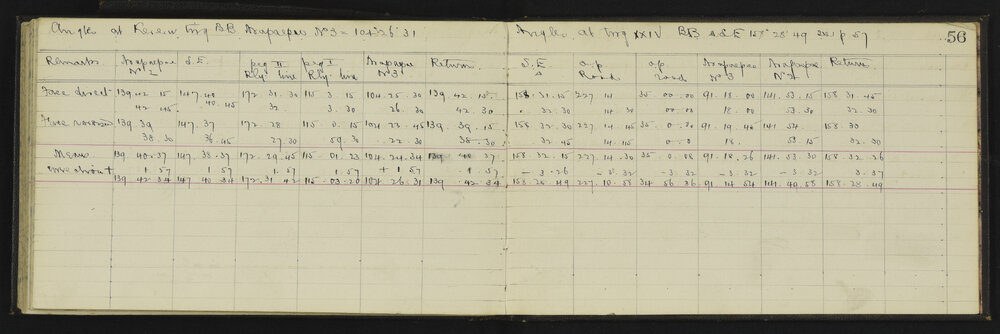 Angles at Trig BB. No 3 = 104° 26' 31 Angles at Trig XXIV BB & S.E 158° 28' 49 see p 57 56
Remarks No 2 S.E. peg II Rly line peg I Rly line No 3 Return S.E. Road Road No 3 No 2 Return
Face direct 139. 42. 15 147. 40 172. 31. 30 115. 3. 15 104. 25. 30 139. 42. 15 158. 31. 15 227. 14 35. 00. 00 91. 18. 00 141. 53. 15 158. 31. 45
42. 45 40. 45 32 3. 30 26. 30 42. 30 32. 30 14. 30 00. 00 18. 00 53. 30 32. 30
Face reversed 139. 39 147. 37 172. 28 115. 0. 15 104. 23. 45 139. 39. 15 158. 32. 30 227. 14. 45 35. 0. 30 91. 19. 45 141. 54 158. 33
38. 30 36. 45 27. 30 59. 30 22. 30 38. 30 32. 45 14. 45 0. 00 18. 53. 15 32. 30
Mean 139. 40. 37 147. 38. 37 172. 29. 45 115. 01. 23 104. 24. 34 139. 40. 37 158. 32. 15 227. 14. 30 35. 0. 08 91. 18. 26 141. 53. 30 158. 32. 26
1. 57 1. 57 1. 57 1. 57 + 1. 57 1. 57 - 3. 26 - 3. 32 - 3. 32 - 3. 32 - 3. 32 3. 37
139. 42. 34 147. 40. 34 172. 31. 42 115. 03. 20 104. 26. 31 139. 42. 34 158. 28. 49 227. 10. 58 34. 56. 36 91. 14. 54 141. 49. 58 158. 28. 49